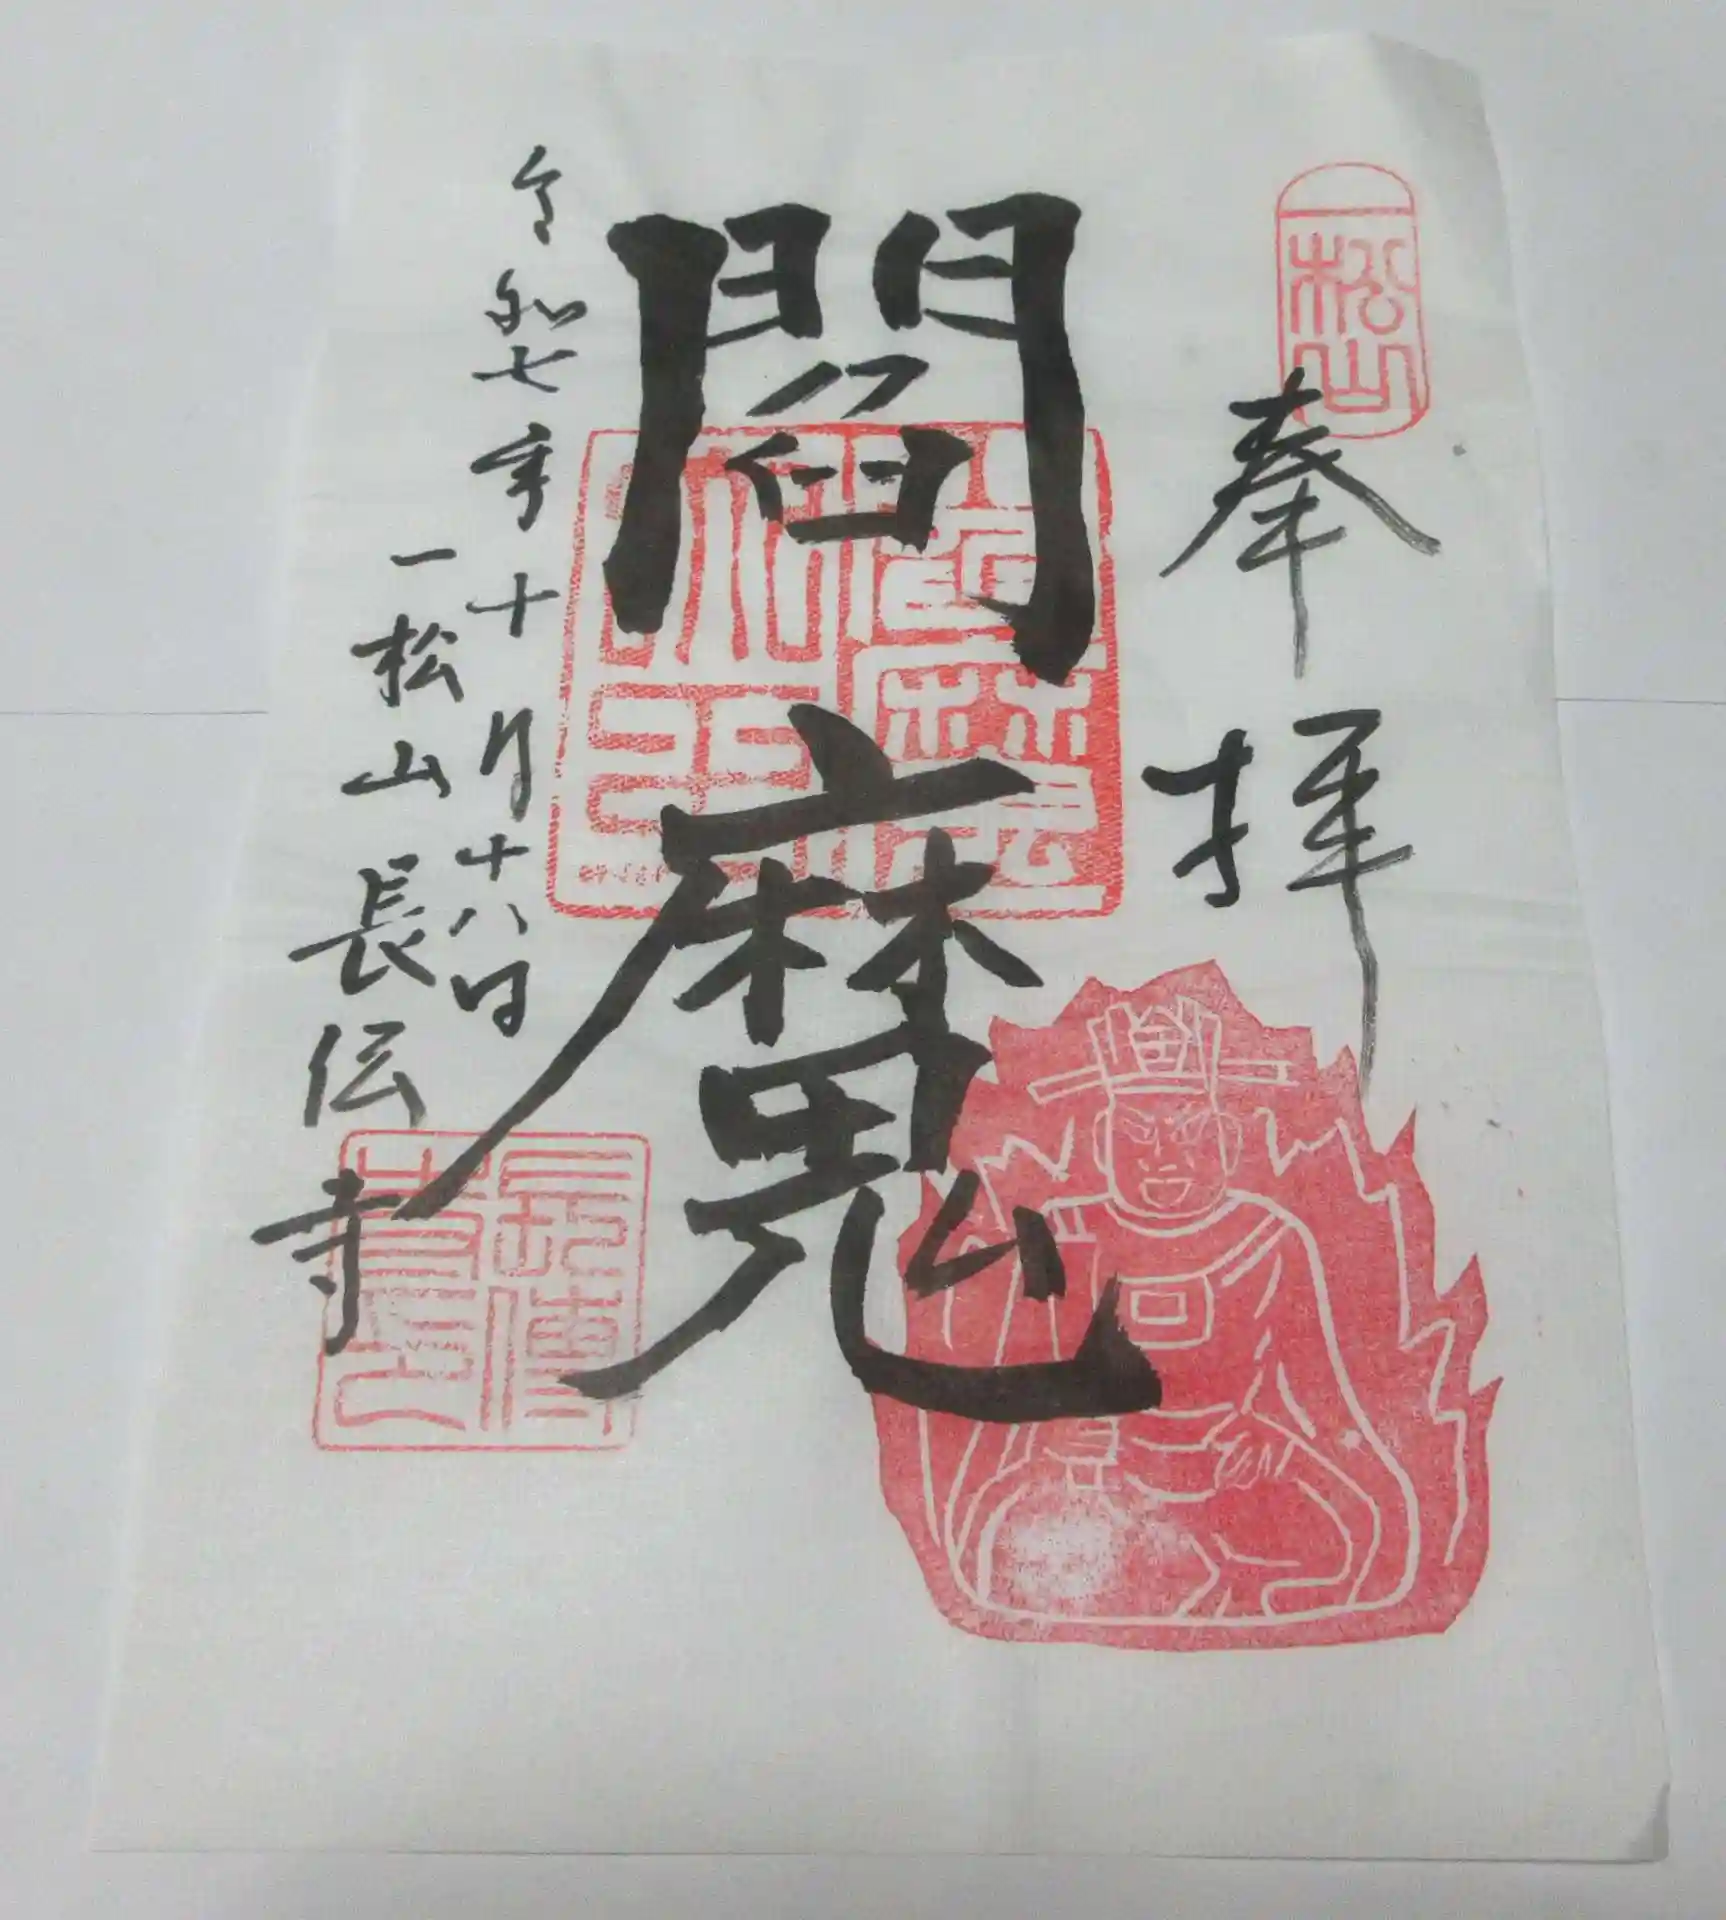 奉拝
一松山
閻魔
閻魔法王
令和七年十月十八日
一松山長伝寺
長傳